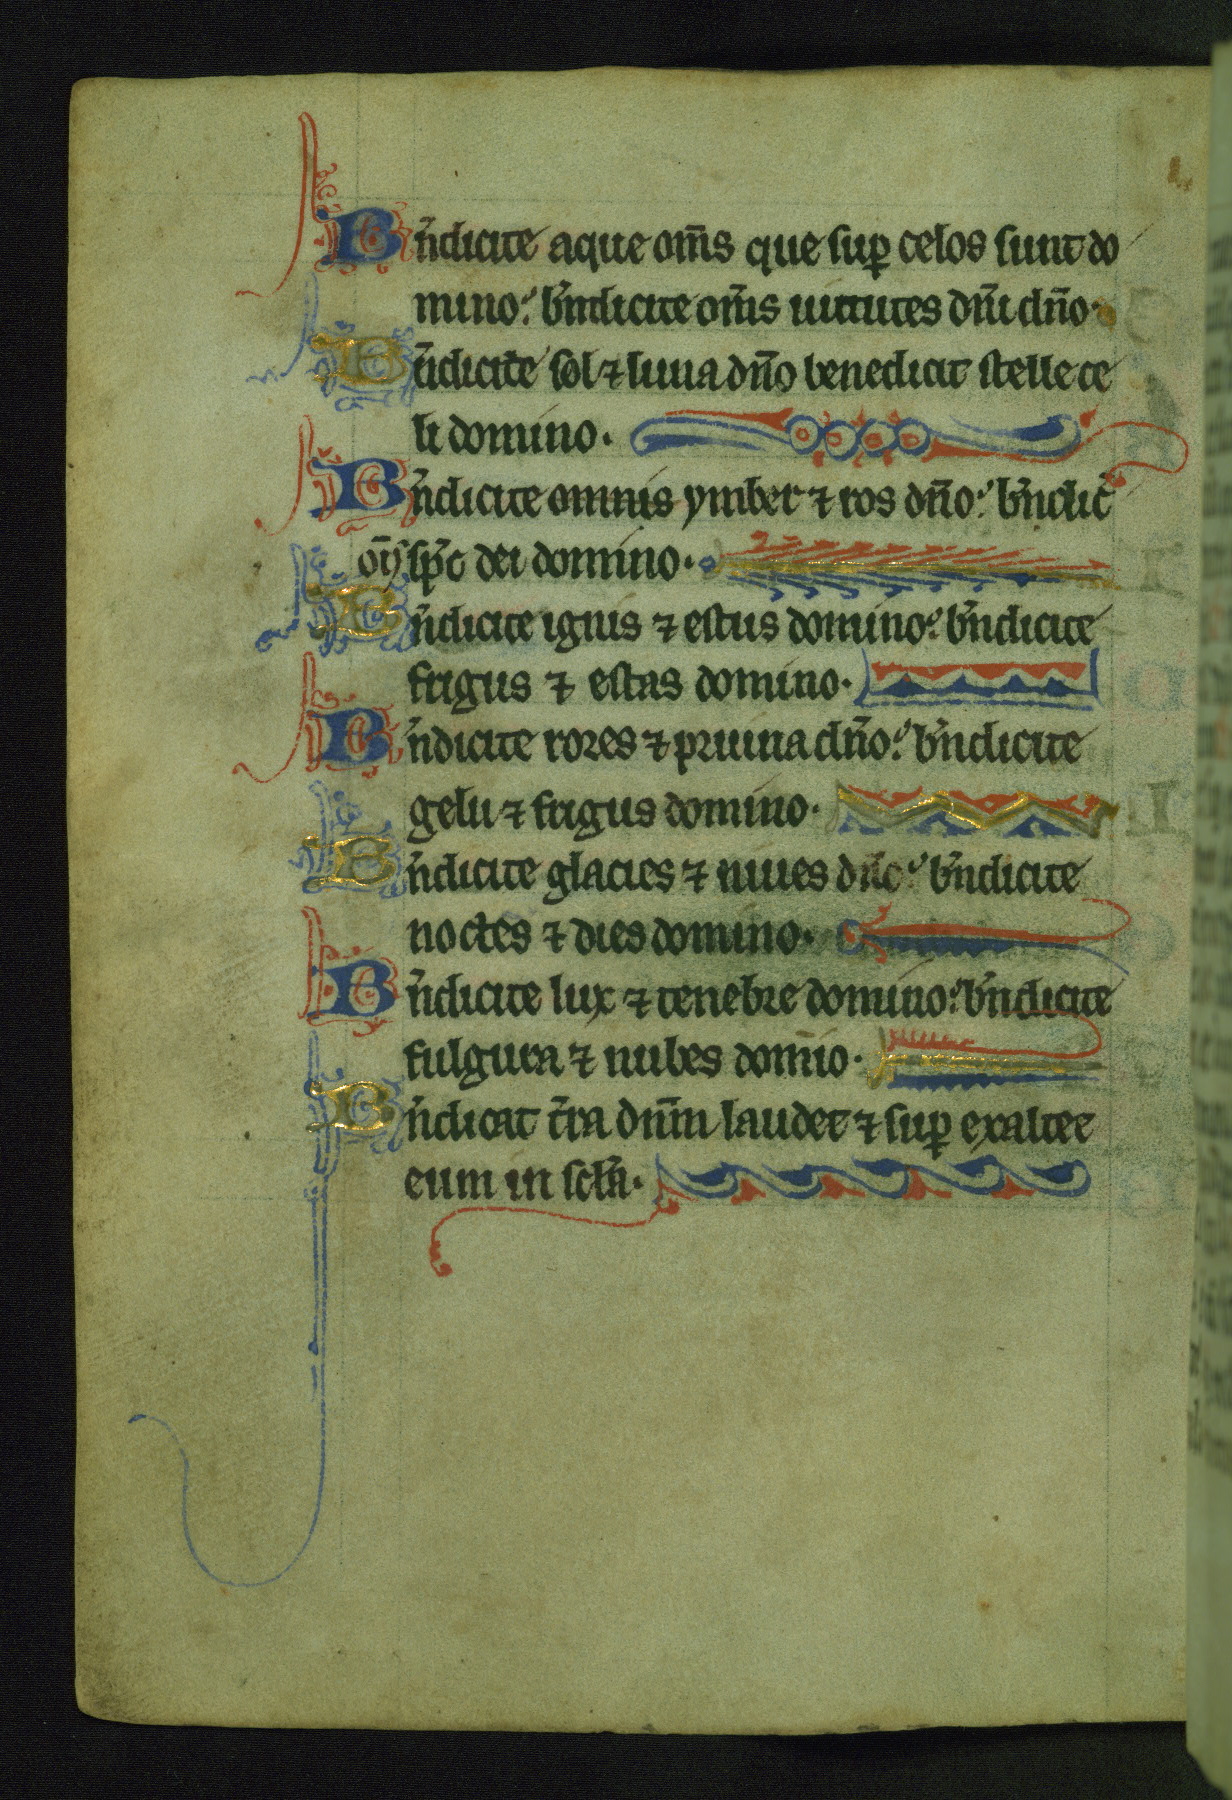 Bn̄dicite aque om̄s que sup̱ celos sunt do
mino: bn̄dicite om̄s uirtutes dn̄i dn̄o.
Bn̄dicite sol ⁊ luna dn̄o benedicat stelle ce
li domino.
Bn̄dicite omnis ymber ⁊ ros dn̄o: bn̄dic̄
om̄s sp̄c dei domino.
Bn̄dicite ignis ⁊ estus domino: bn̄dicite
frigus ⁊ estas domino.
Bn̄dicite rores ⁊ pruina dn̄o: bn̄dicite
gelu ⁊ frigus domino.
Bn̄dicite glacies ⁊ niues dn̄o: bn̄dicite
noctes ⁊ dies domino.
Bn̄dicite lux ⁊ tenebre domino: bn̄dicite
fulgura ⁊ nubes domīo.
Bn̄dicat t̄ra dn̄m laudet ⁊ sup̱ exaltet
eum in sc̄la.